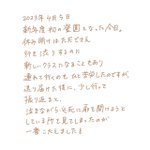 2023年4月5日
新年度初の登園となった今日。
休み明けはただでさえ
行き渋りするのに
新しいクラスになることもあり
連れて行くのも、ひと苦労したのですが
送り届けた後に、少し行って
振り返ると、
泣きながら、必死に扉を開けようと
している所を見てしまったのが
一番こたえました